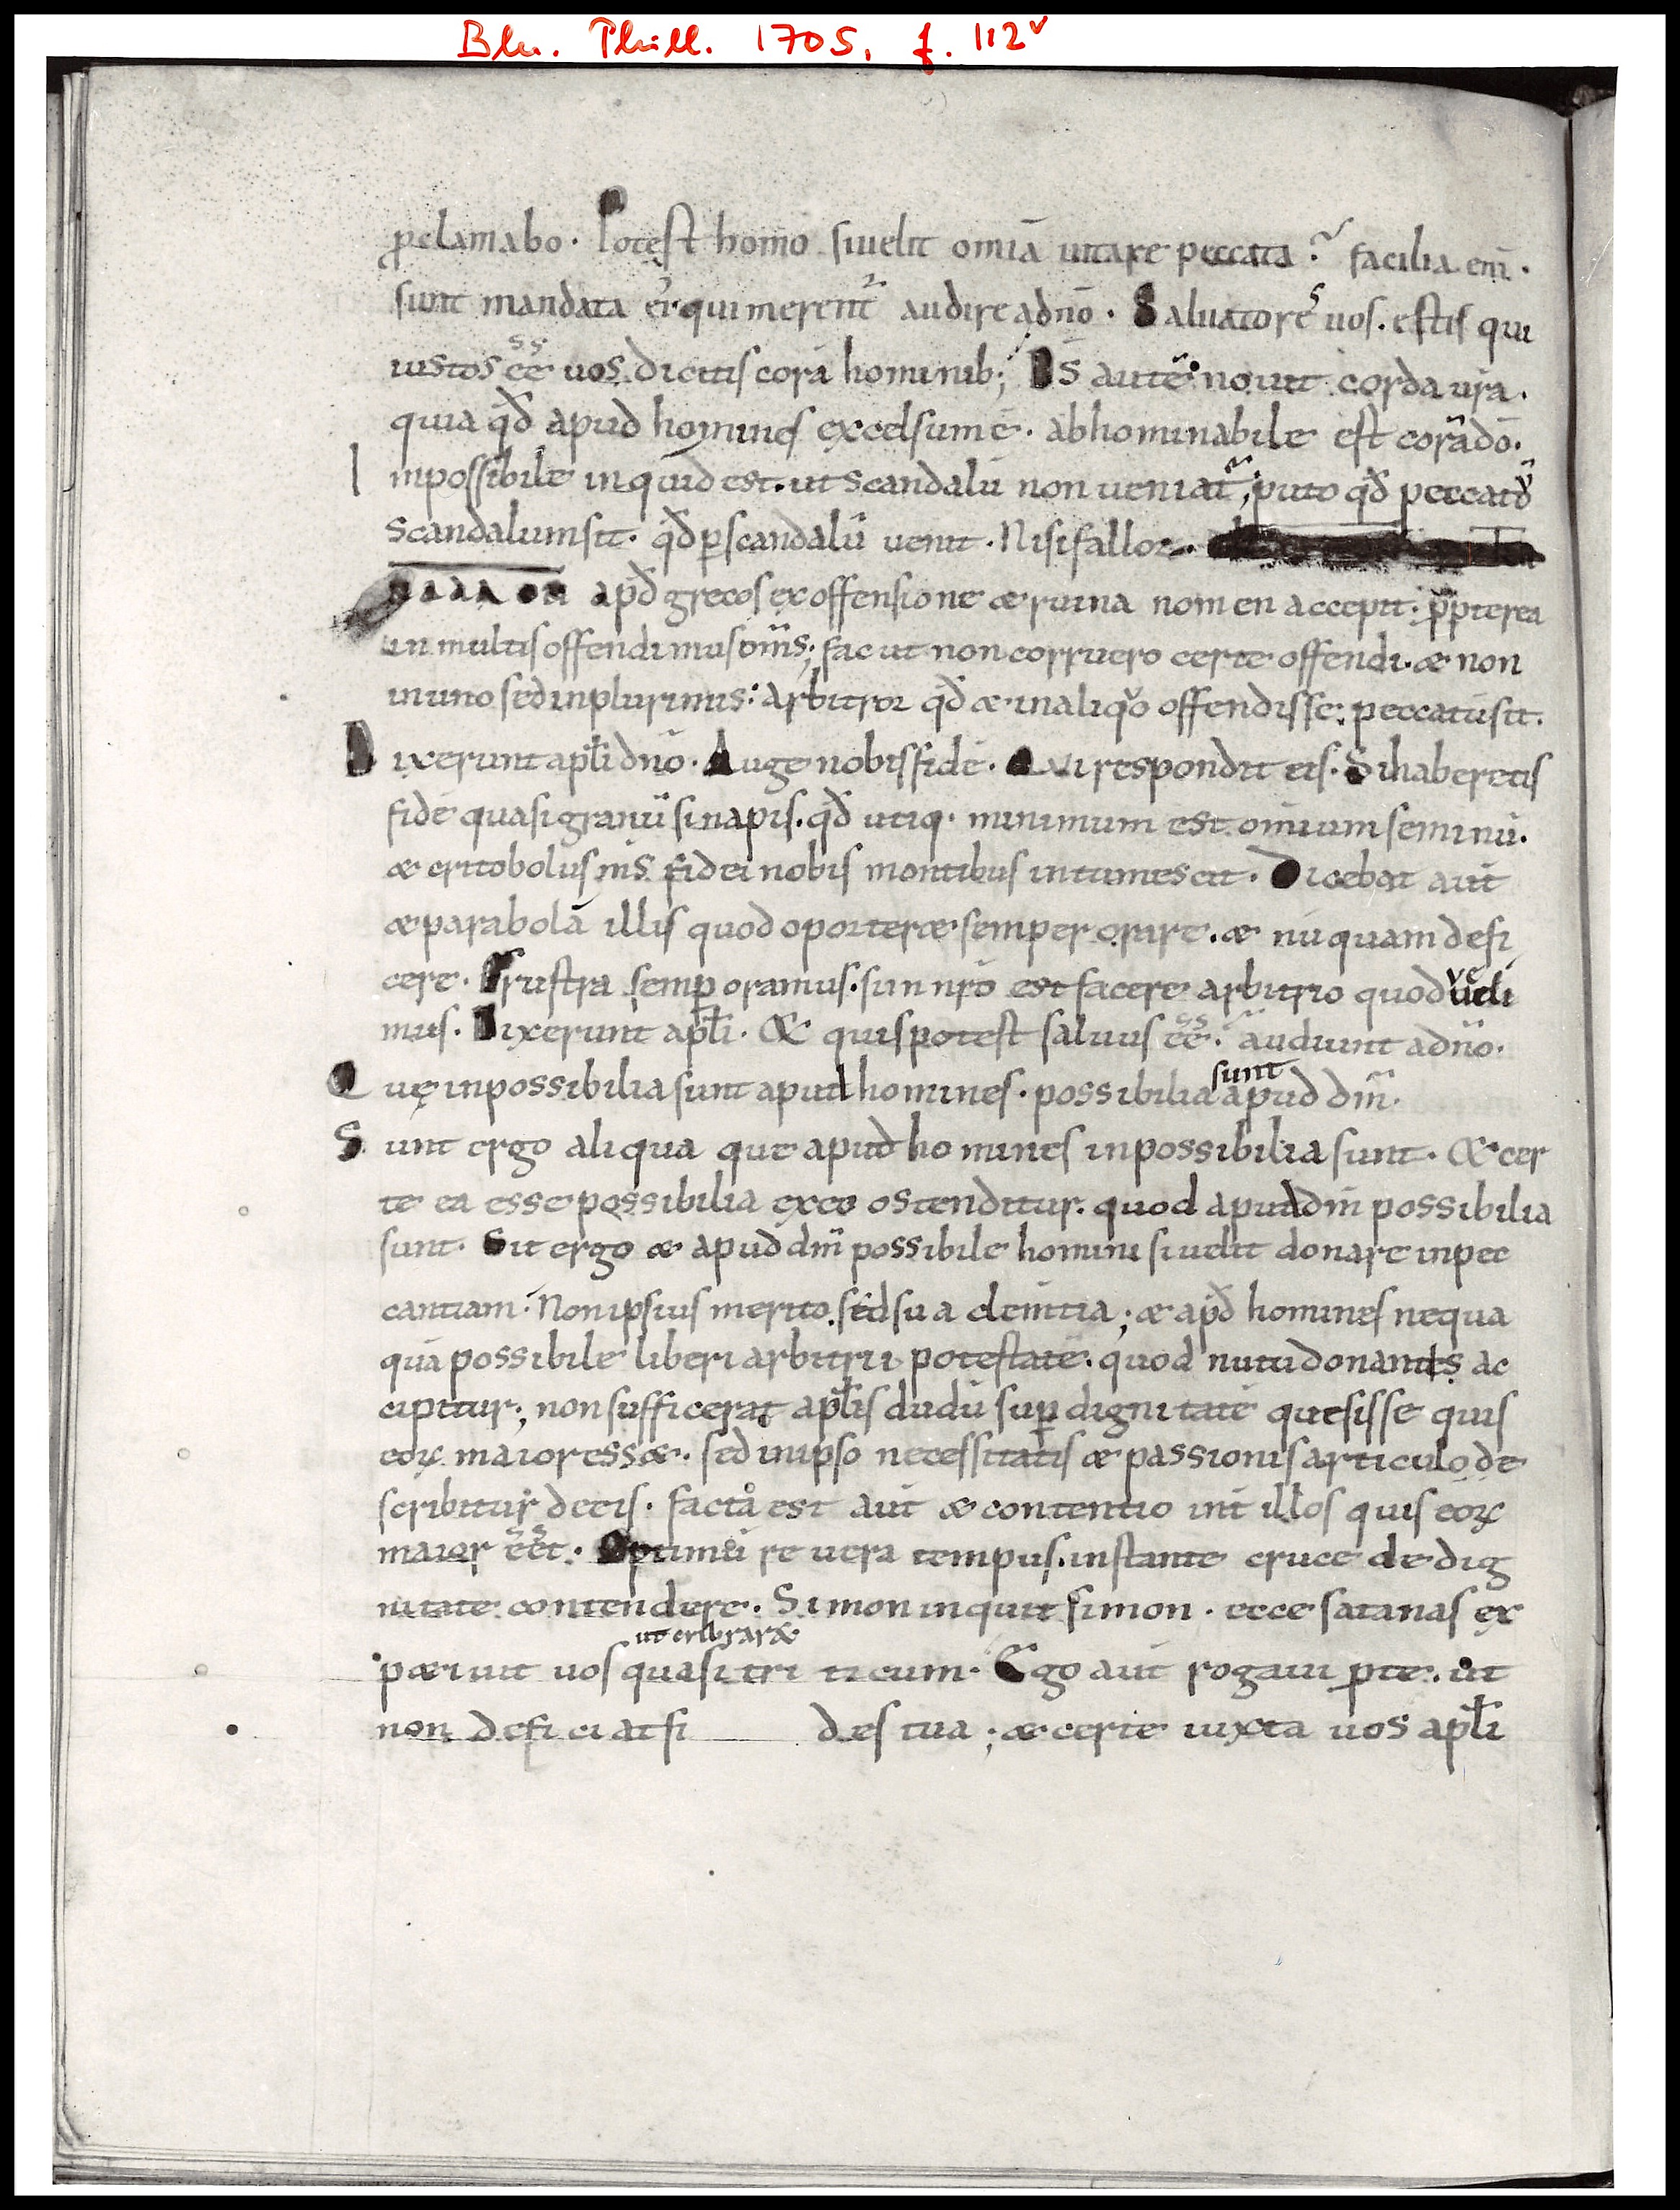 Bln. Phill. 1705, f. 112v
p̱clamabo. Potest homo si uelit omīa uitare peccata? facilia enī.
sunt mandata et qui merent᷑ audire a dn̄o. Saluatore uos. estis qui
iustos ēē uos dicitis corā hominib; D̄s autē nouit corda ur̄a.
quia qd̄ apud homines excelsum ē. abhominabile est corā dō.
Inpossibile inquid est. ut scandalū non ueniat; puto qd̄ peccatū
scandalum sit. qd̄ ꝑ scandalū uenit. Nisi fallor.
apd̄ grecos ex offensione & ruina nomen accepit. p̱pterea
in multis offendimus om̄s; fac ut non corruero certe offendi. & non
in uno sed in plurimis: arbitror qd̄ & in aliquo offendisse. peccatū sit.
Dixerunt apl̄i dn̄o. Auge nobis fidē. Qui respondit eis. Si haberetis
fidē quasi granū sinapis. qd̄ utiq. minimum est omīum seminū.
& critobolus n̄s fidei nobis montibus intumescit. Dicebat aūt
& parabolā illis quod oporter& semper orare. & nūquam defi
cere. Frustra semꝑ oramus. si in nr̄o est facere arbitrio quod ueli
mus. Dixerunt apl̄i. & quis potest saluus ēē. audiunt a dn̄o.
Quę inpossibilia sunt apud homines. possibilia sunt apud dm̄.
Sunt ergo aliqua que apud homines inpossibilia sunt. & cer
te ea esse possibilia ex eo ostenditur. quod apud dm̄ possibilia
sunt. Sit ergo & apud dm̄ possibile homini si uelit donare inpec
cantiam. Non ipsius merito. sed sua clem̄tia; & apd̄ homines nequa
quā possibile liberi arbitrii potestatē. quod nutu donantis ac
cipitur; non sufficerat apl̄is dudū suꝑ dignitatē quesisse quis
eoꝝ maior ess&. sed in ipso necessitatis & passionis articulo de
scribitur de eis. facta est aūt & contentio int̄ illos quis eoꝝ
maior eēt. Optimū re uera tempus. instante cruce de dig
nitate contendere. Simon inquit simon. ecce satanas ex
ut cribrar&
p&iuit uos quasi tri ticum. Ego aūt rogaui ꝓ te. ut
non deficiat fi des tua; & certe iuxta uos apl̄i